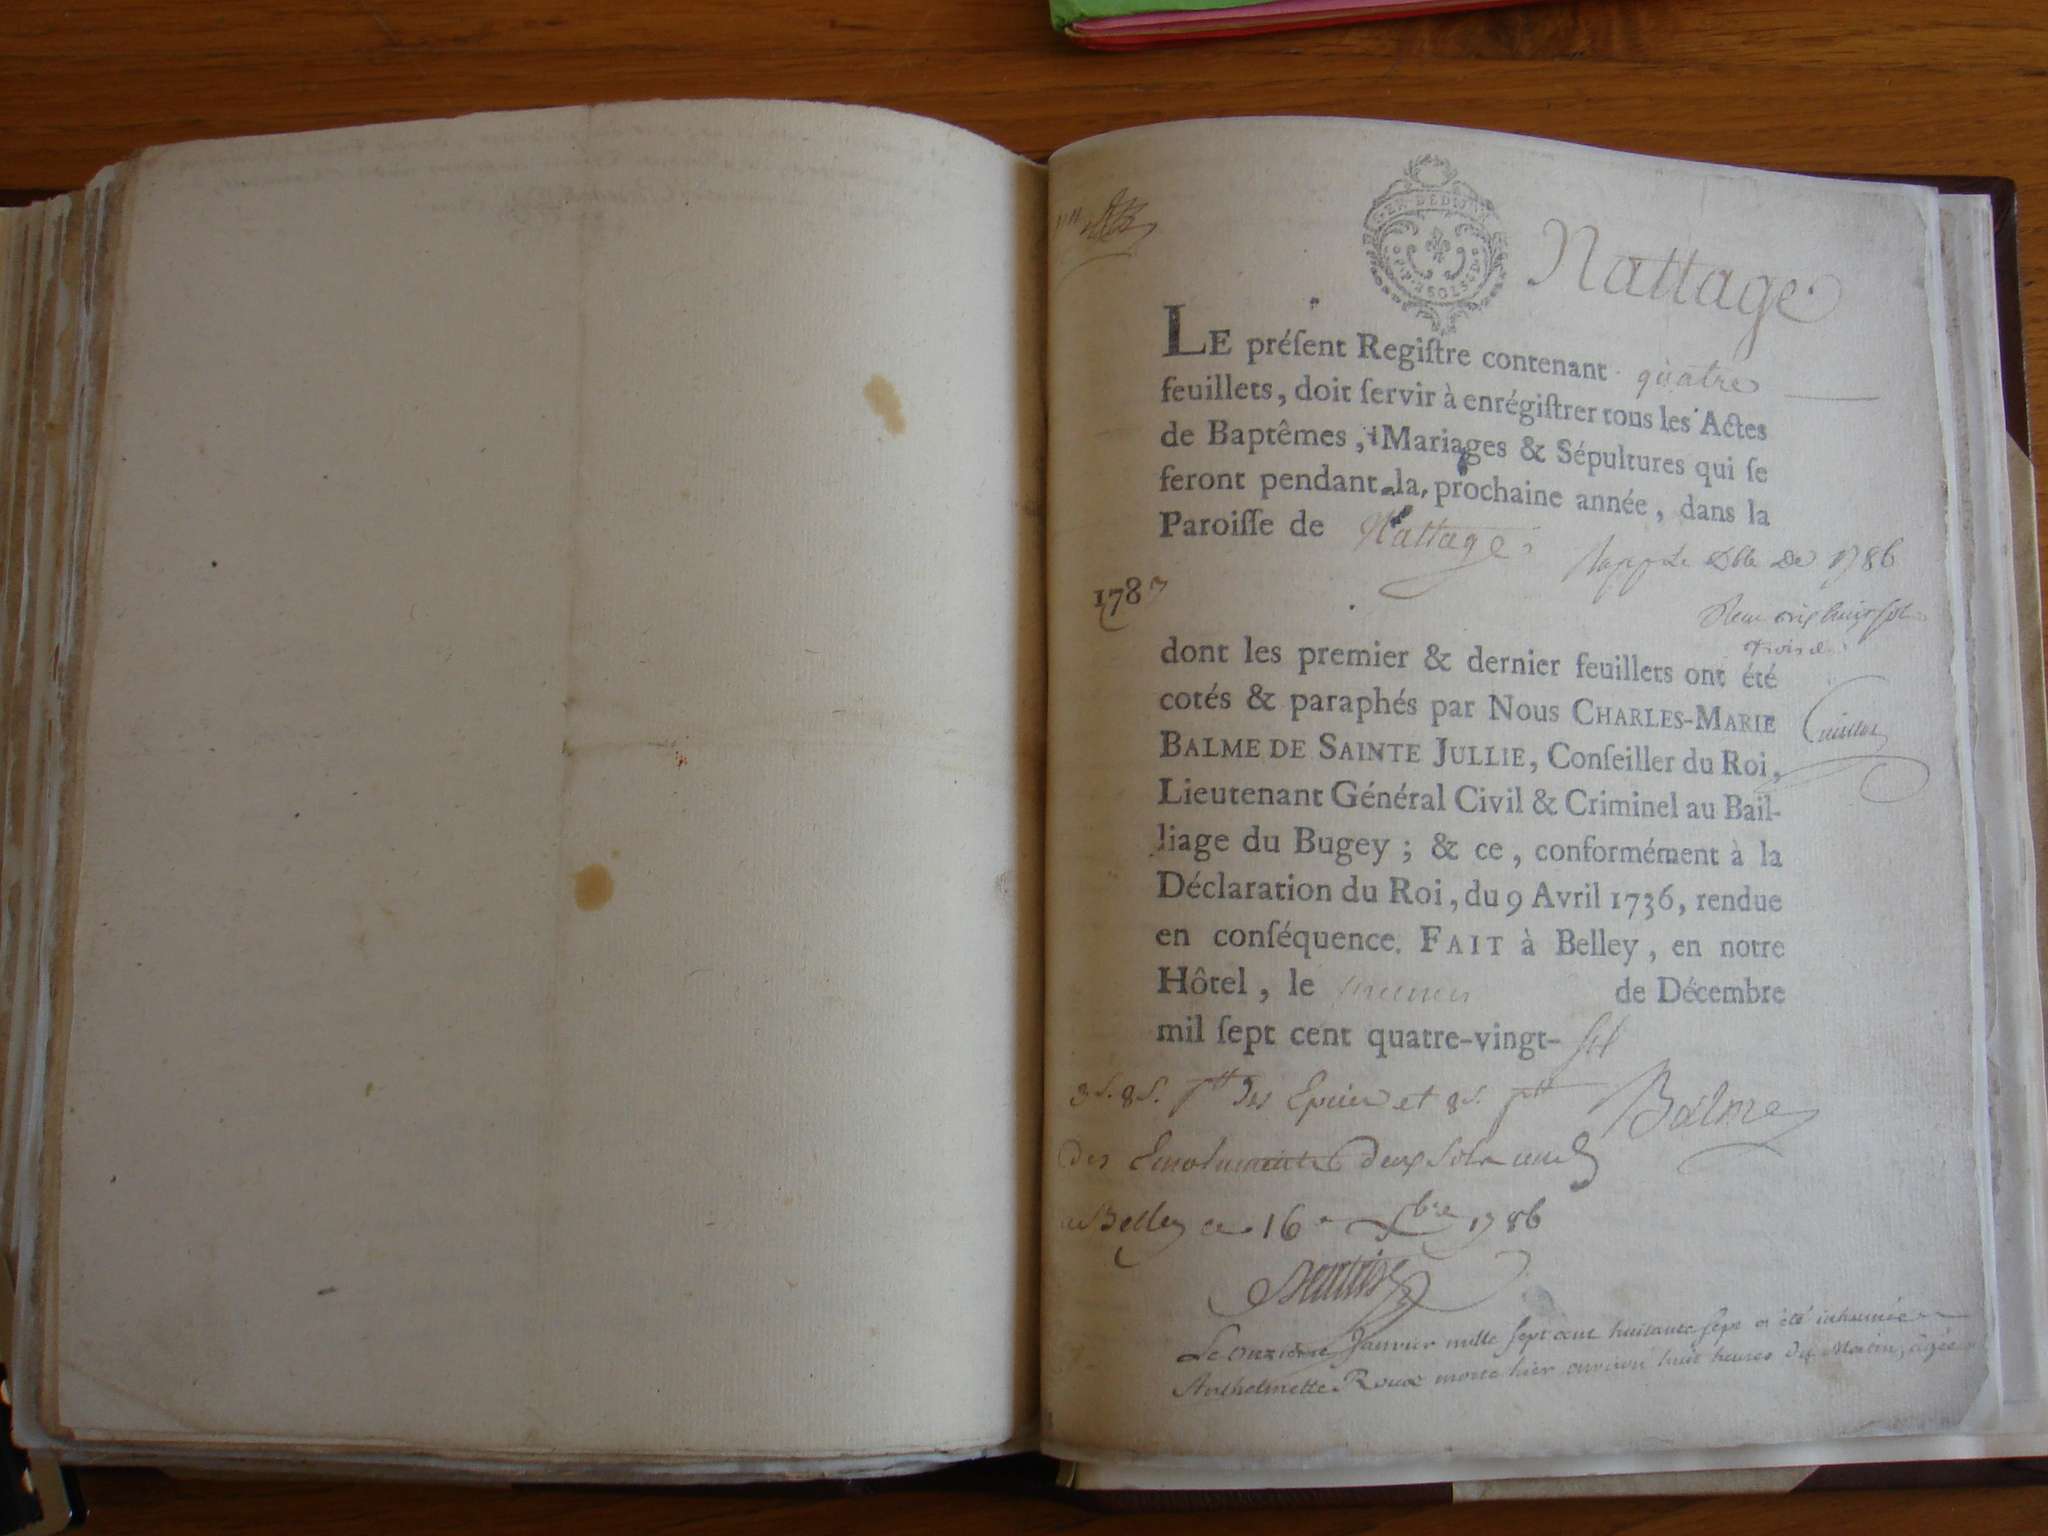 GEN. DE DIJON
Nattage
LE préſent Regiſtre contenant quatre
feuillets, doit ſervir à enrégiſtrer tous les Actes
de Baptêmes, Mariages & Sépultures qui ſe
feront pendant la prochaine année, dans la
Paroiſſe de Nattage
de 1786
1787
dont les premier & dernier feuillets ont été
cotés & paraphés par Nous CHARLES-MARIE
BALME DE SAINTE JULLIE, Conſeiller du Roi,
Lieutenant Général Civil & Criminel au Bail-
liage du Bugey ; & ce, conformément à la
Déclaration du Roi, du 9 Avril 1736, rendue
en conſéquence. FAIT à Belley, en notre
Hôtel, le premier de Décembre
mil ſept cent quatre-vingt- ſix
3s. 8d. des Epices et 8s.
Balme
des Emoluments deux sols
a Belley ce 16 Xbre 1786
Le onzieme Janvier mille sept cent huitante sept a été inhumée
Anthelmette Roux morte hier environ huit heures du Matin, agée